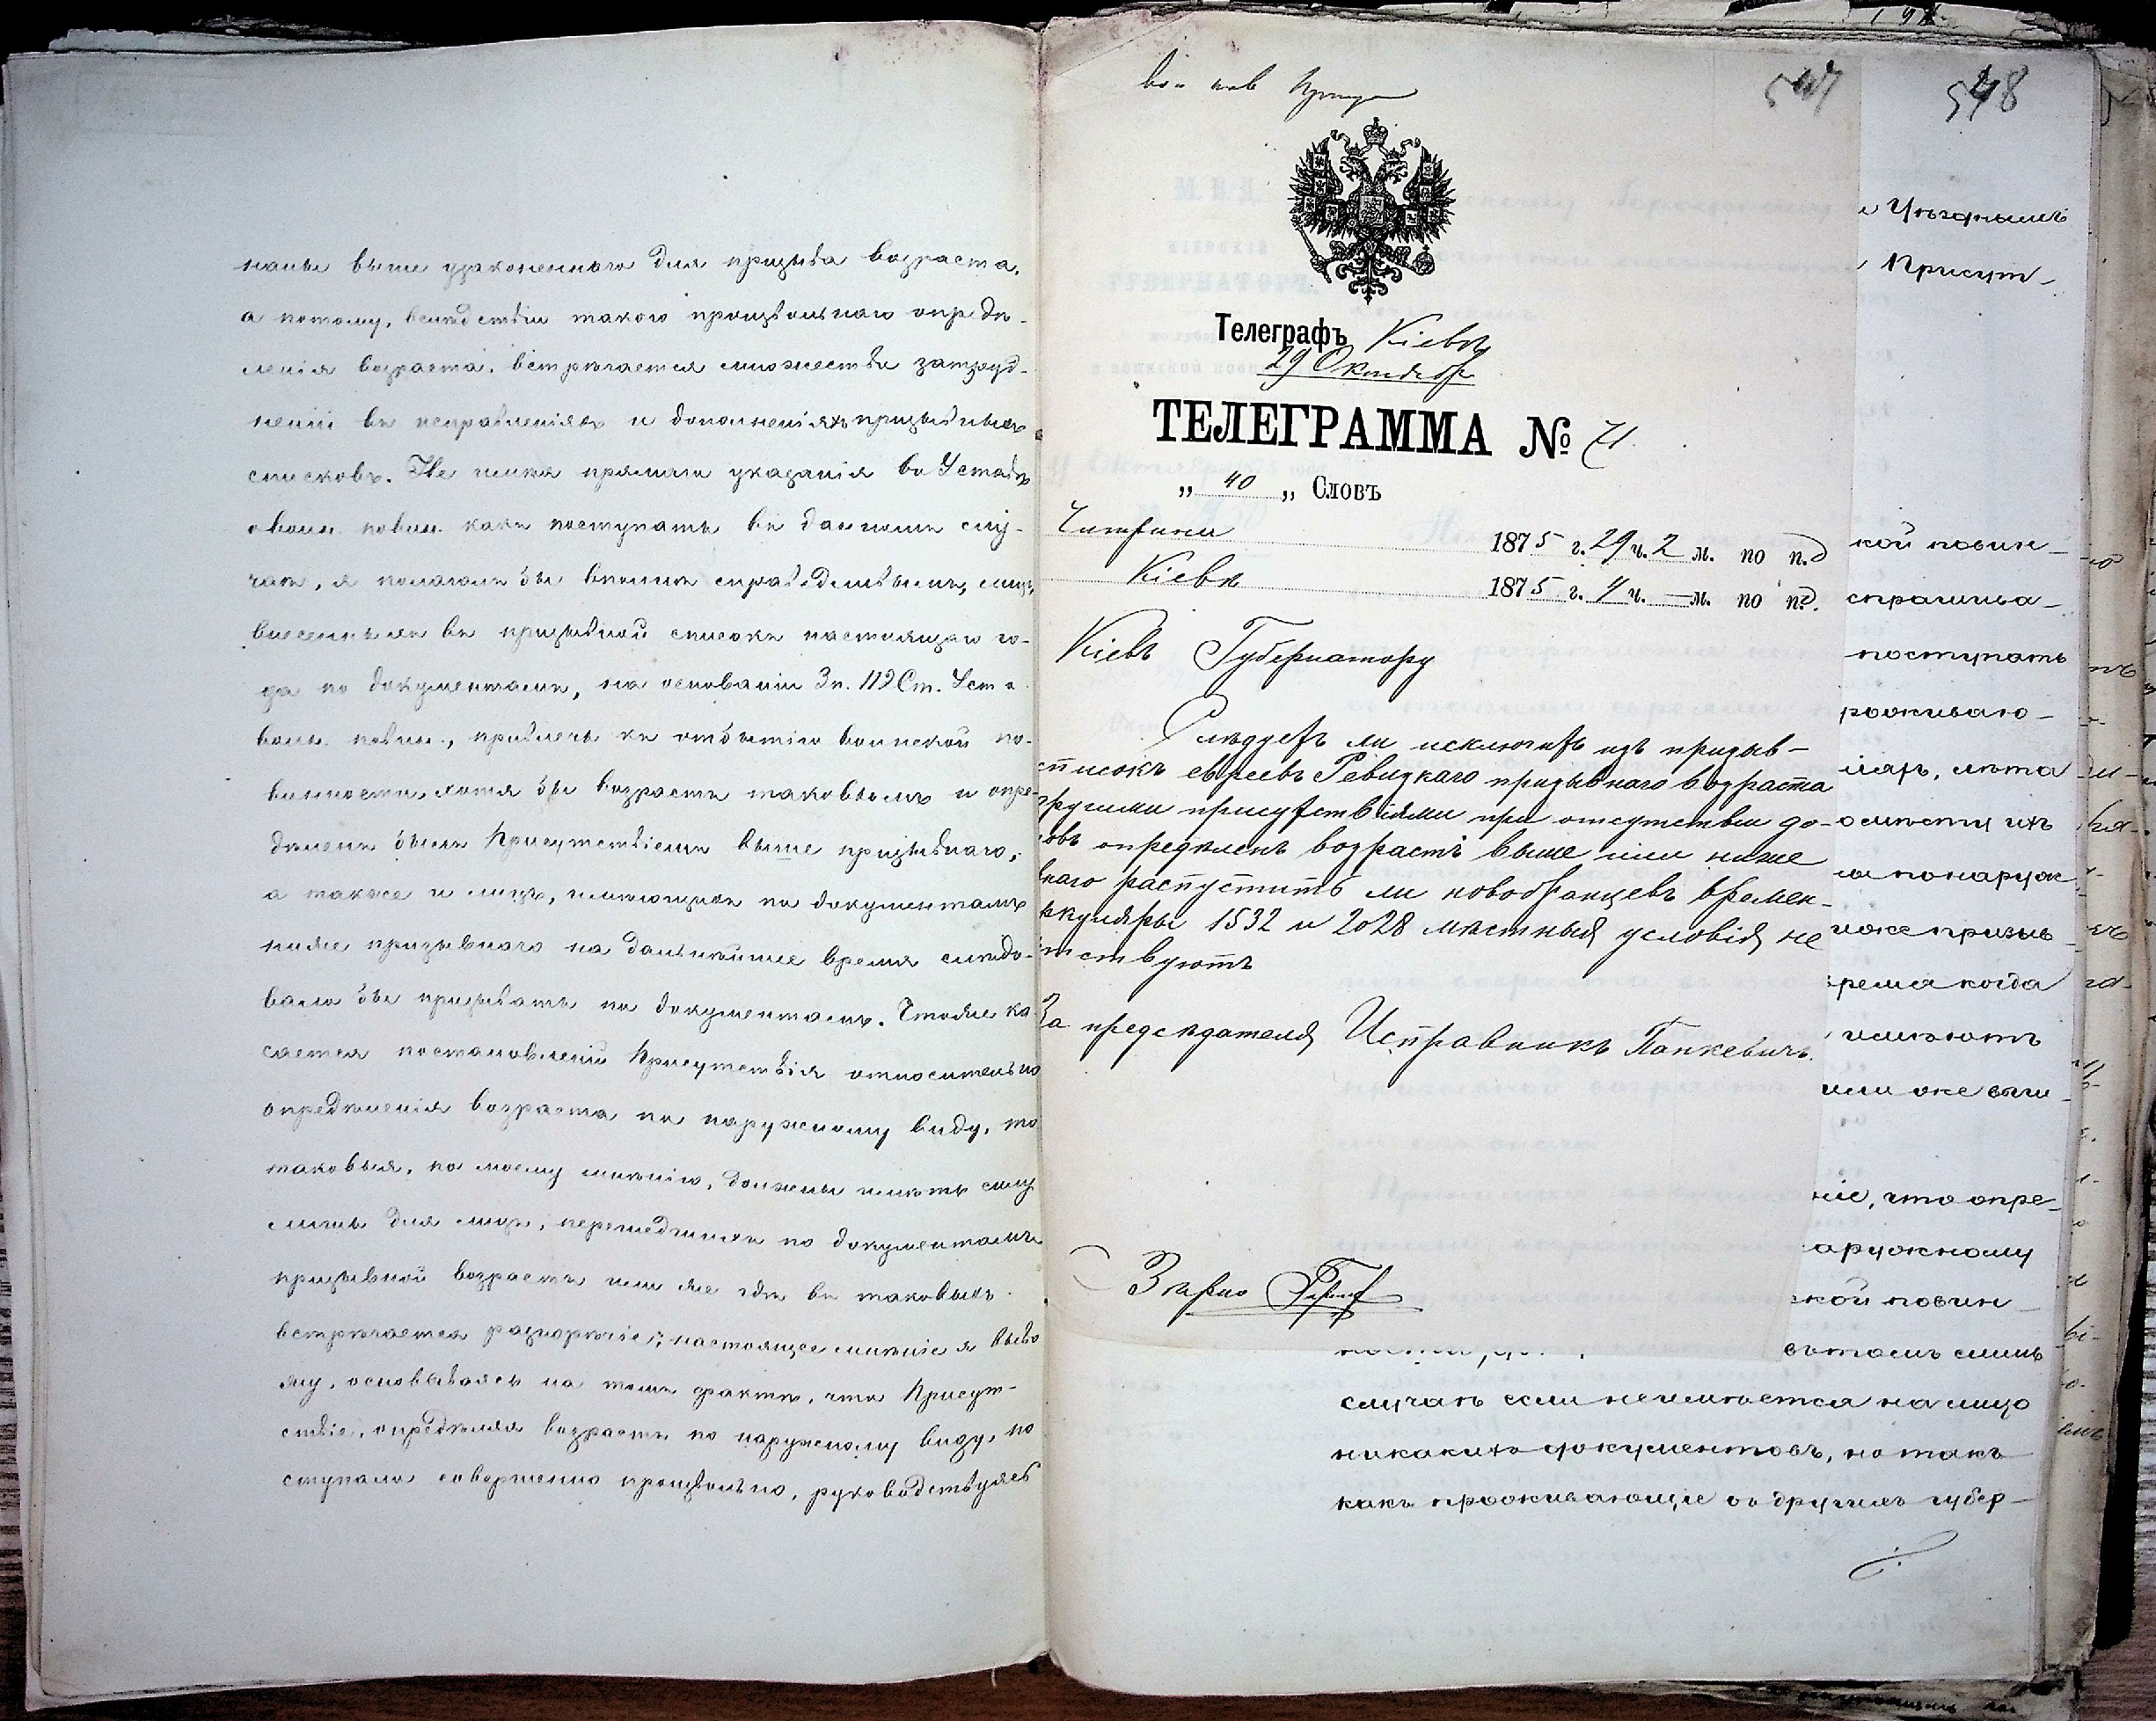 наны выше узаконеннаго для призыва возраста,
а потому, вслѣдствіи такого произвольнаго опредѣ-
ленія возраста, встрѣчается множество затруд-
неній въ исправленіяхъ и дополненіяхъ призывныхъ
списковъ. Не имѣя прямаго указанія въ Уставѣ
о воин. повин. какъ поступать въ данномъ слу-
чаѣ, я полагалъ бы вполнѣ справедливымъ, лицъ,
внесенныхъ въ призывной списокъ настоящаго го-
да по документамъ, на основаніи 3 п. 112 Ст. Уст. о
воин. повин., привлечь къ отбытію воинской по-
винности, хотя бы возрастъ таковымъ и опре-
дѣленъ былъ Присутствіемъ выше призывнаго,
а также и лицъ, имѣющихъ по документамъ
ниже призывнаго на дальнѣйшее время слѣдо-
вало бы призывать по документамъ. Чтоже ка-
сается постановленій Присутствія относительно
опредѣленія возраста по наружному виду, то
таковыя, по моему мнѣнію, должны имѣть силу
лишь для лицъ, перешедшихъ по документамъ
призывной возрастъ или же гдѣ въ таковыхъ
встрѣчается разнорѣчіе; настоящее мнѣніе я выво
жу, основываясь на томъ фактѣ, что Присут-
ствіе, опредѣляя возрастъ по наружному виду, по
ступало совершенно произвольно, руководствуясь
547
548
Телеграфъ Кіевъ
29 Октябр
ТЕЛЕГРАММА № 71.
„ 40 „ Словъ
Чигирина 1875 г. 29 ч. 2 м. по п.д
Кіевъ 1875 г. 4 ч. — м. по пд.
Кіевъ Губернатору
Слѣдуетъ ли исключить изъ призыв-
списокъ евреевъ Ревизкаго призывнаго возраста
другими присутствіями при отсутствіи до-
овъ опредѣленъ возрастъ выше или ниже
наго распустить ли новобранцевъ времен-
ркуляры 1532 и 2028 мѣстныя условія не
тствуютъ
За предсѣдателя Исправникъ Панкевичъ.
Уѣзднымъ
Присут-
кой повин-
спрашива-
поступать
роживаю-
ляр, лѣта
понаруж
иже призыв
ремя когда
имѣютъ
или же выш
ніе, что опре-
аружному
ской повин-
вътомъ лишь
случаѣ если неимѣется на лицо
никакихъ документовъ, но такъ
какъ проживающіе въ другихъ губер-